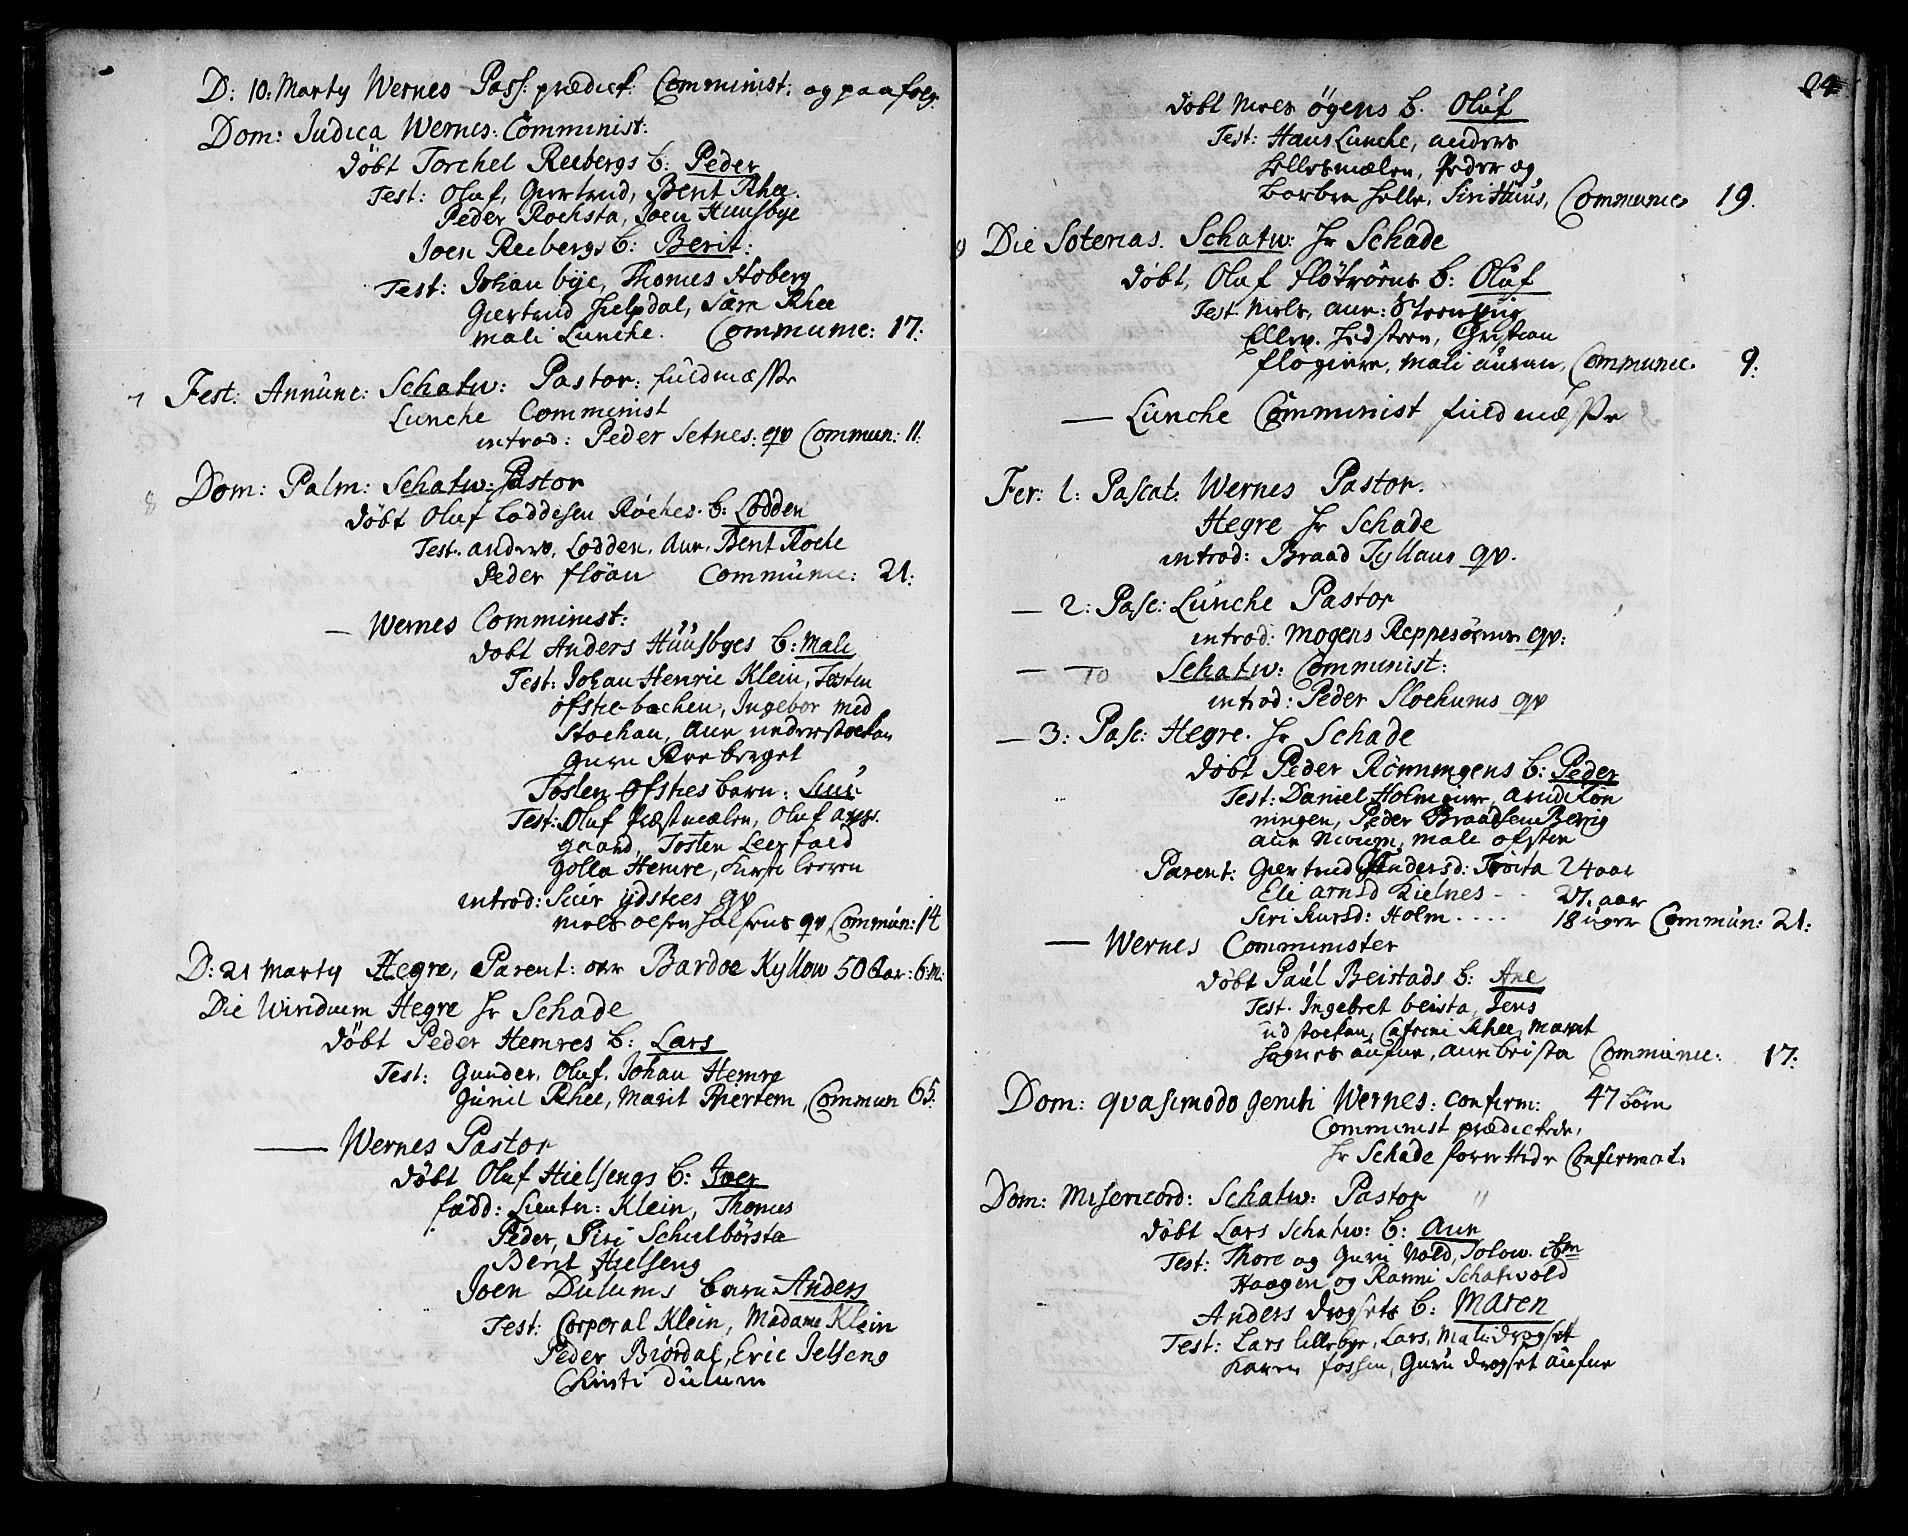 D: 10: Marty Wernes Pass: prædict: Comminist: og paafolg.
Dom: Judica Wernes: Comminist:
döbt Torchel Reebergs b: Peder
Test: Oluf, Giertrud, Berit Rhee.
Peder Rochsta, Joen Huusbye
Joen Reebergs b: Berit:
Test: Johan bye, Thomes Hoberg
Giertrud Hielpdal, Sara Rhee
Mali Lunche. Commune: 17:
7 Fest: Annunc: Schatw: Pastor: fuldmæsse
Lunche Comminist
introd: Peder Setnes: qv Commun: 11:
8 Dom: Palm: Schatw: Pastor
döbt Oluf Loddesen Röches. b: Lodden
Test. anders, Lodden. Ane. Berit Roche
Peder flöan Commune: 21:
— Wernes Comminist:
döbt Anders Huusbyes b: Mali
Test: Johan Henric Klein, Tosten
ofstie-bachen, Ingebor med
Stochan, Ane nederstockan
Guru Reeberget
Tosten ofsties barn: Siur
Test: Oluf Præstmælen, Oluf
gaard, Tosten Leerfald
Golla Hemre, Kirsti leeren
introd: Siur ydstees qv
Niels olsen Halsens qv, Commun: 14
D: 21 Marty Hegre, Parent: over Bardoe Kyllow 50 Aar: 6: m:
Die Viridium Hegre Hr Schade
döbt Peder Hemres b: Lars
Test: Gunder, Oluf, Johan Hemre
Gunil Rhee, Marit Miertem, Commun 65.
— Wernes Pastor
döbt Oluf Hielsengs b: Iver
fadd: Lieutn: Klein, Thomes
Peder, Siri Schulbörsta
Berit Hielseng
Joen Dulums barn Anders
Test: Corporal Klein, Madame Klein
Peder Biördal, Eric Jelseng
Christi dulum
24
döbt Niels ögens b. Oluf
Test: Hans Lunche, anders
Hellesmælen, Peder og
barbra Helle, Siri Huus, Commune 19.
9 Die Soterias. Schatw: Hr Schade
döbt, Oluf flötrörns b: Oluf
Test Niels, Ane:
Ellev. Hedsteen, Christian
Flogiere, Mali auran, Commune. 9:
— Lunche Comminist fuldmæsse
Fer: 1: Pascat: Wernes Pastor.
Hegre Hr Schade
introd: Braad Tyllaus qv.
— 2: Pasc: Lunche Pastor
introd: Mogens Reppesörnes qv:
— 10 Schatw: Comminist:
introd: Peder Slochums qv
— 3: Pasc: Hegre. Hr Schade
döbt Peder Rönningens b: Peder
Test: Daniel Holmgiere, Arnd Rön
ningen, Peder Braadsen Berrig
Ane mali ofsten
Parent: Giertrud Andersd: Troita 24 aar
Eli Arnsd Kielnes - - 27. aar
Siri Siursd: Holm .... 18 uger Commun: 21:
— Wernes Comminister
döbt Paul Beistads b: Ane
Test. Ingebret beista, Jens
ud stockan, Catrini Rhee, Marit
Hognes aufne, Ane beista Commune: 17:
Dom: quasimodo geniti Wernes: confirm: 47 börn
Comminist prædickede,
Hr Schade forrettede Confirmat.
Dom: Misericord: Schatw: Pastor
döbt Lars Schatw: b: Ane
Test: Thore og Guru Vold,
Haagen og Ranni Schatvold
Anders drogsets b: Maren
Test: Lars lillebye, Lars, Mali drogset
Karen fossen, Guru drogset aufne